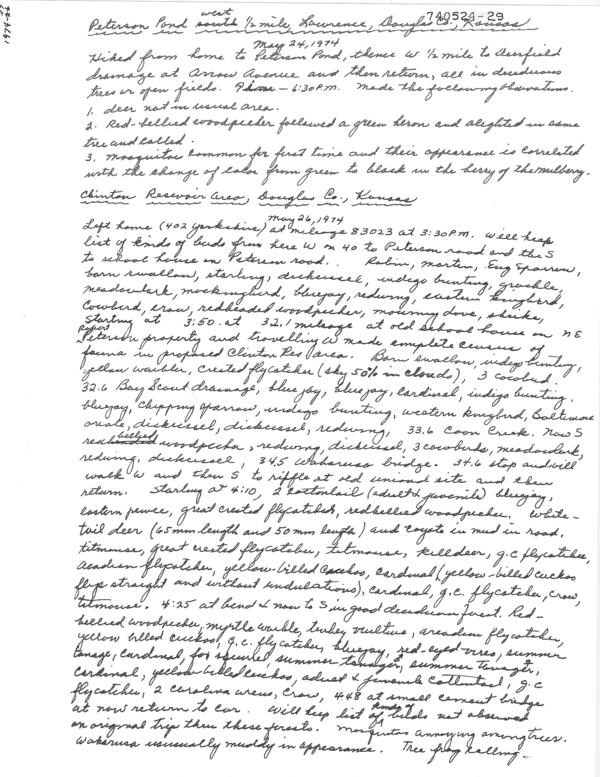 1974-22
740524-29
Peterson Pond south west 1/2 mile, Lawrence, Douglas Co., Kansas
May 24, 1974
Hiked from home to Peterson Pond, thence W 1/2 mile to Deerfield
drainage at Arrow Avenue and then return, all in deciduous
trees or open fields. – 6:30 P.M. Made the following observations.
1. deer not in usual area.
2. Red-bellied woodpecker followed a green heron and alighted in same
tree and called.
3. mosquitoes common for first time and their appearance is correlated
with the change of color from green to black in the berry of the mulberry.
Clinton Resevoir Area, Douglas Co., Kansas
May 26, 1974
Left home (402 Yorkshire) at mileage 83023 at 3:30 P.M. Will keep
list of kinds of birds from here W on 40 to Peterson road and the S
to school house on Peterson road. . Robin, martin, Eng Sparrow,
barn swallow, starling, dickcissel, indigo bunting, grackle,
meadowlark, mockingbird, bluejay, redwing, eastern kingbird,
Cowbird, crow, redheaded woodpecker, mourning dove, shrike,
Starting at 3:50 at 32.1 mileage at old school house on NE
Report Peterson property and travelling W made complete census of
fauna in proposed Clinton Res area. Barn swallow, indigo bunting,
yellow warbler, crested flycatcher (sky 50% in clouds), 3 cowbird.
32.6 Boy Scout drainage, blue jay, bluejay, cardinal, indigo bunting.
bluejay, chipping sparrow, indigo bunting, western kingbird, Baltimore
oriole, dickcissel, dickcissel, redwing, 33.6 Coon Creek. Now S
red bellied woodpecker, redwing, dickcissel, 3 cowbirds, meadowlark,
redwing, dickcissel, 34.5 Wakarusa bridge. 34.6 stop and will
walk W and then S to riffle at old union site and then
return. Starting at 4:10, 2 cottontail (adult & juvenile) bluejay,
eastern pewee, great crested flycatcher, redbellied woodpecker. White-
tail deer (65mm length and 50mm length) and coyote in mud in road.
titmouse, great crested flycatcher, titmouse, killdeer, g.c flycatcher,
Acadian flycatcher, yellow-billed cuckoo, cardinal (yellow-billed cuckoos
flap straight and without undulations), cardinal, g.c. flycatcher, crow,
titmouse. 4:25 at bend & now to S in good deciduous forest. Red-
bellied woodpecker, myrtle warbler, turkey vulture, acadian flycatcher,
yellow billed cuckoo, g.c. flycatcher, bluejay, red-eyed vireo, summer
tanager, cardinal, fox squirrel, summer tanager, summer tanager,
cardinal, yellow-billed cuckoo, adult & juvenile cottontail, g.c
flycatcher, 2 carolina wrens, Crow, 4:48 at small cement bridge
at now return to car. Will keep list of kinds of birds not observed
on original trip thru these forests. Mosquitos annoying among trees.
Wakarusa usually muddy in appearance. Tree frog calling –